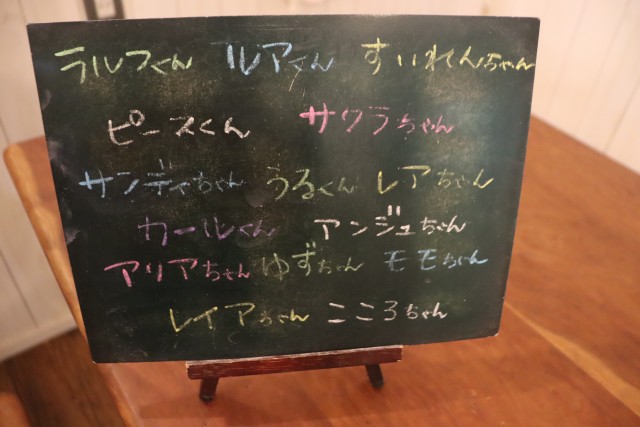 ラルフくん ルアくん すいれんちゃん
ピースくん サクラちゃん
サンディちゃん うるくん レアちゃん
カールくん アンジュちゃん
アリアちゃん ゆずちゃん モモちゃん
レイアちゃん こころちゃん